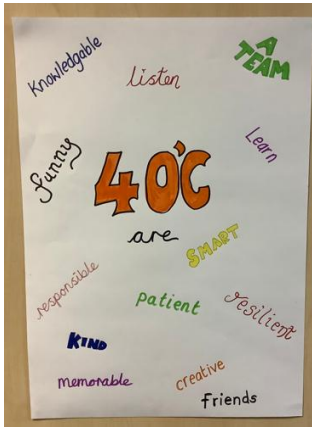 Knowledgable
listen
A
TEAM
funny
Learn
40'C
are
SMART
responsible
patient
resilient
KIND
memorable
creative
friends